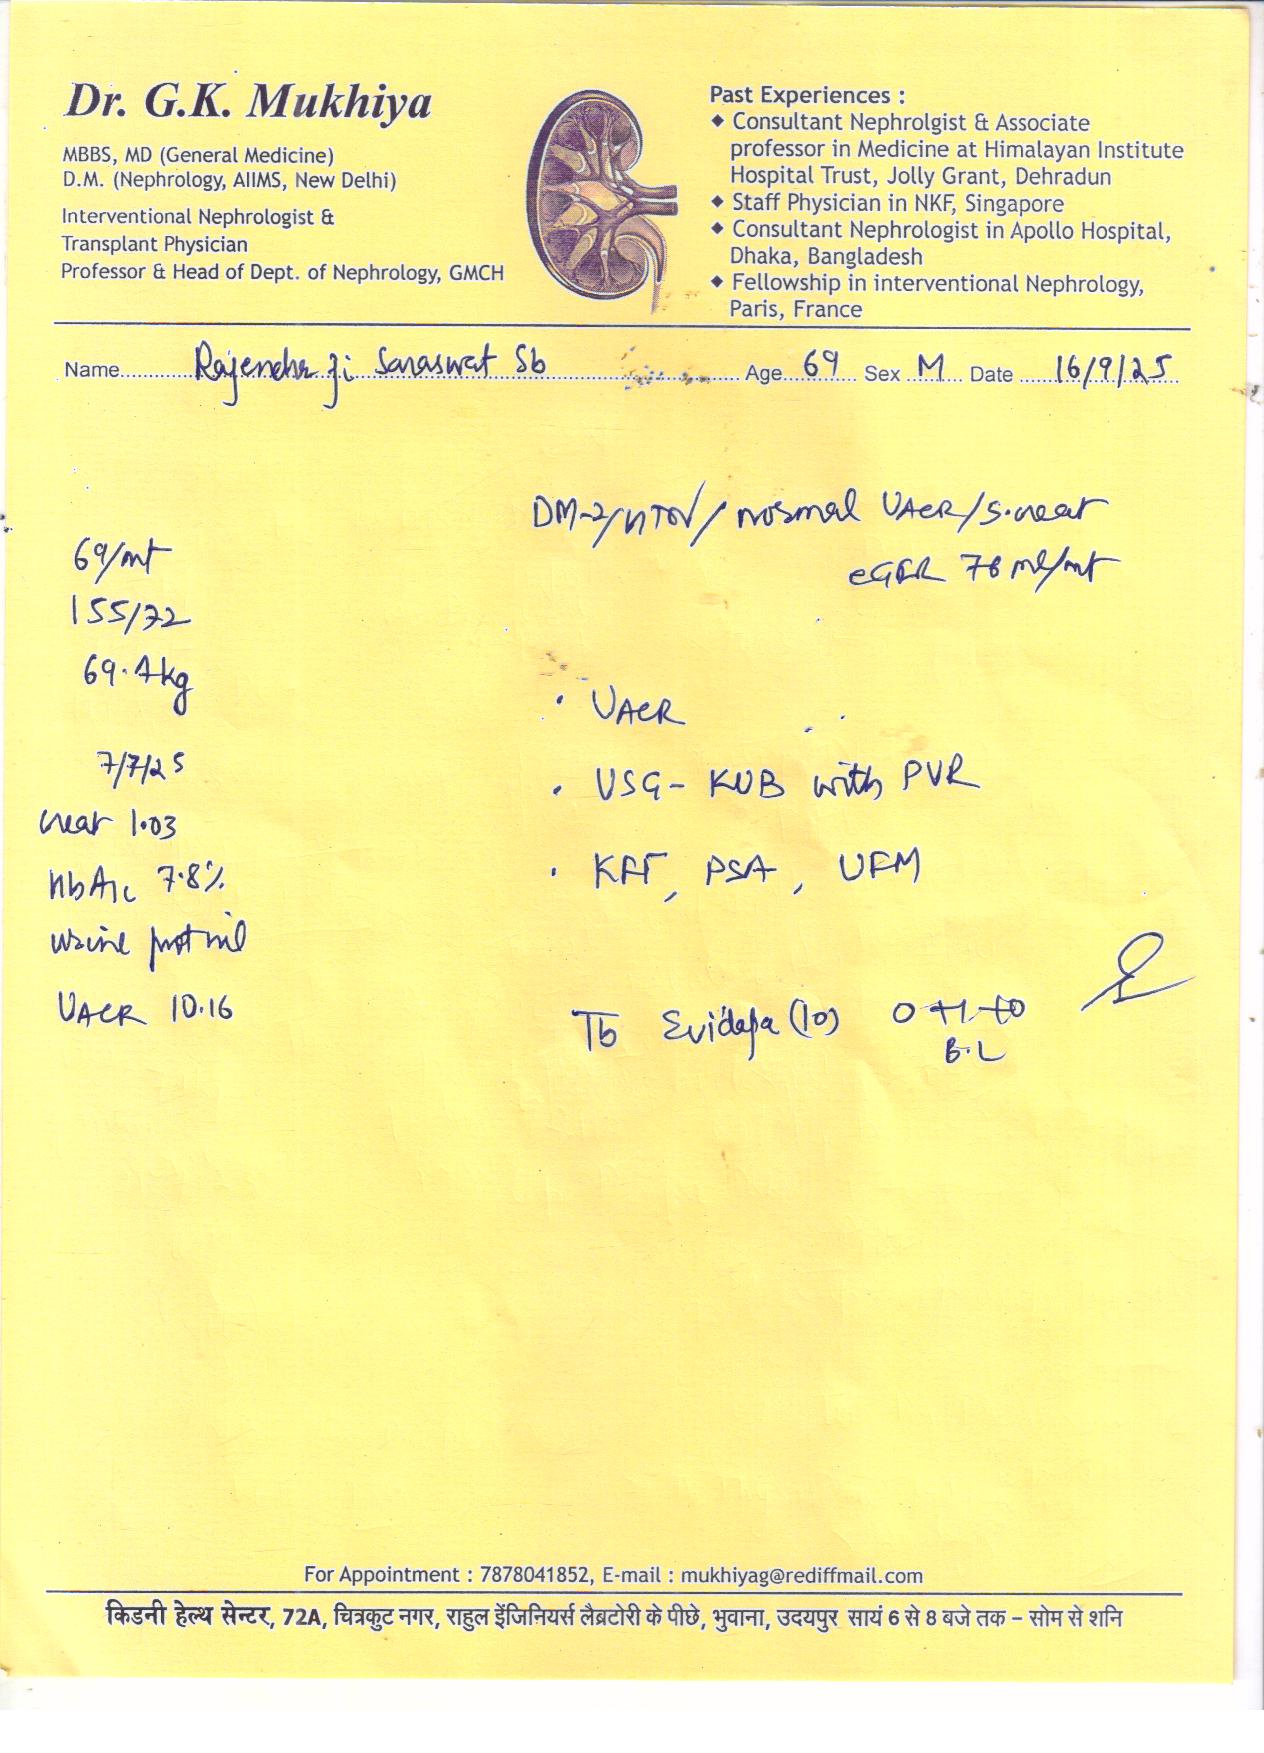 Dr. G.K. Mukhiya
MBBS, MD (General Medicine)
D.M. (Nephrology, AIIMS, New Delhi)
Interventional Nephrologist &
Transplant Physician
Professor & Head of Dept. of Nephrology, GMCH
Past Experiences :
◆ Consultant Nephrolgist & Associate
professor in Medicine at Himalayan Institute
Hospital Trust, Jolly Grant, Dehradun
◆ Staff Physician in NKF, Singapore
◆ Consultant Nephrologist in Apollo Hospital,
Dhaka, Bangladesh
◆ Fellowship in interventional Nephrology,
Paris, France
Name Rajendra Ji Saraswat Sb Age 69 Sex M Date 16/9/25
DM-2/HTN/normal UACR/S.creat
eGFR 78 ml/mt
69/mt
155/72
69.4kg
7/7/25
creat 1.03
HbA1c 7.8%
urine prot nil
UACR 10.16
• UACR
• USG- KUB with PVR
• KFT, PSA, UFM
Tb Evidapa (10) 0 +1 +0
B.L
For Appointment : 7878041852, E-mail : mukhiyag@rediffmail.com
किडनी हेल्थ सेन्टर, 72A, चित्रकुट नगर, राहुल इंजिनियर्स लैब्रटोरी के पीछे, भुवाना, उदयपुर सायं 6 से 8 बजे तक – सोम से शनि